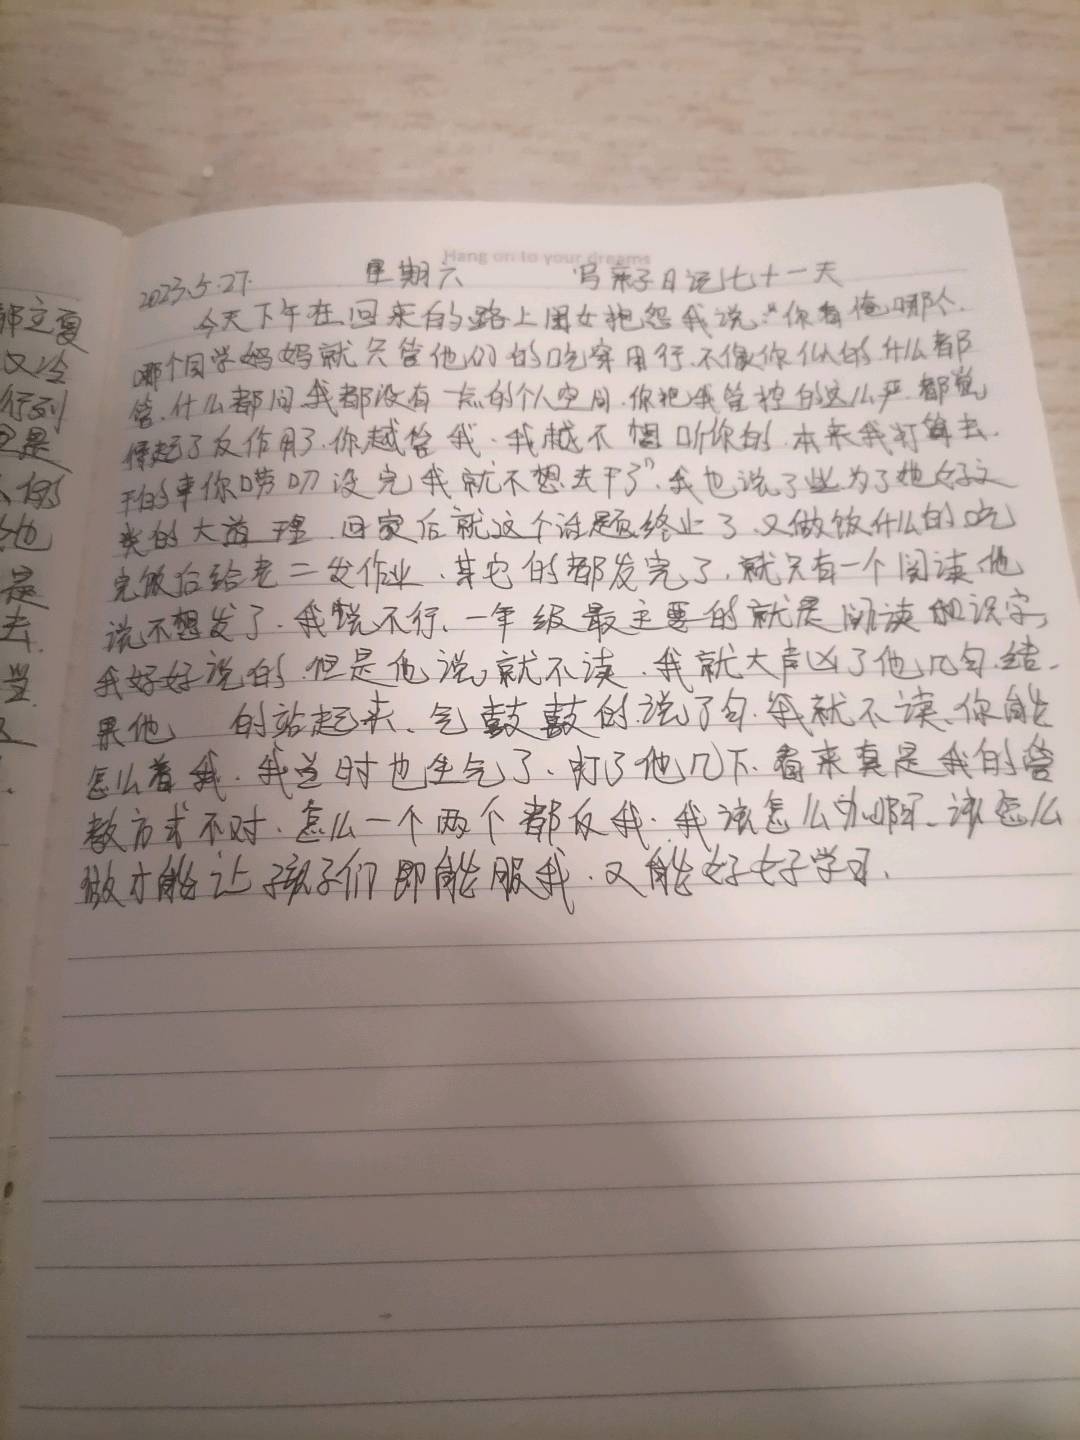 Hang on to your dreams
2023.5.27. 星期六 写亲子日记七十一天
今天下午在回来的路上闺女抱怨我说:“你看俺哪个.
哪个同学妈妈就只管他们的吃穿用行.不像你似的.什么都
管.什么都问.我都没有一点的个人空间.你把我管控的这么严.都觉
得起了反作用了.你越管我.我越不想听你的.本来我打算去.
干的事你唠叨没完我就不想去干了”.我也说了些为了她好之
类的大道理.回家后就这个话题终止了.又做饭什么的.吃
完饭后给老二发作业.其它的都发完了.就只有一个阅读他
说不想发了.我说不行.一年级最主要的就是阅读和识字,
我好好说的.但是他说就不读.我就大声凶了他几句.结.
果他 的站起来、气鼓鼓的.说了句.我就不读、你能
怎么着我.我当时也生气了.打了他几下.看来真是我的管
教方式不对.怎么一个两个都反我.我该怎么办啊.该怎么
做才能让孩子们即能服我.又能好好学习.
郎立夏
又冷
行列
是
的
他
是
去.
当.